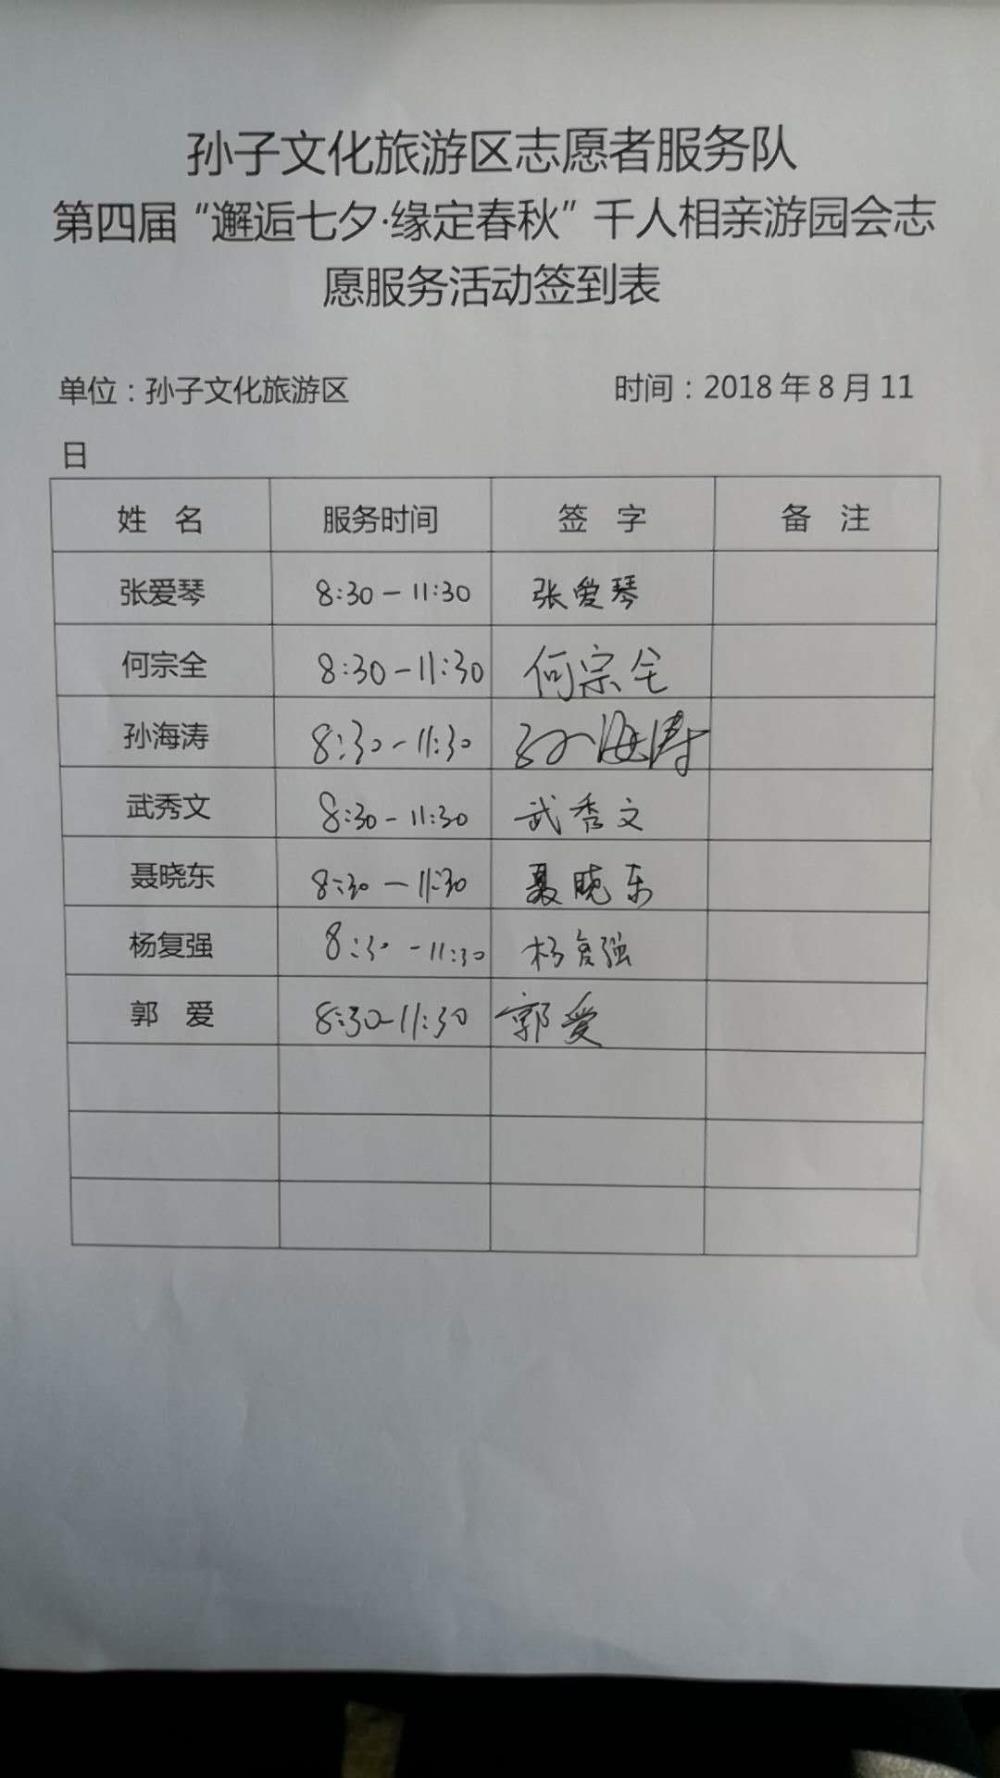 孙子文化旅游区志愿者服务队
第四届“邂逅七夕·缘定春秋”千人相亲游园会志
愿服务活动签到表
单位：孙子文化旅游区 时间：2018年8月11
日
姓 名 服务时间 签 字 备 注
张爱琴 8:30-11:30 张爱琴
何宗全 8:30-11:30 何宗全
孙海涛 8:30-11:30 孙海涛
武秀文 8:30-11:30 武秀文
聂晓东 8:30-11:30 聂晓东
杨复强 8:30-11:30 杨复强
郭 爱 8:30-11:30 郭爱